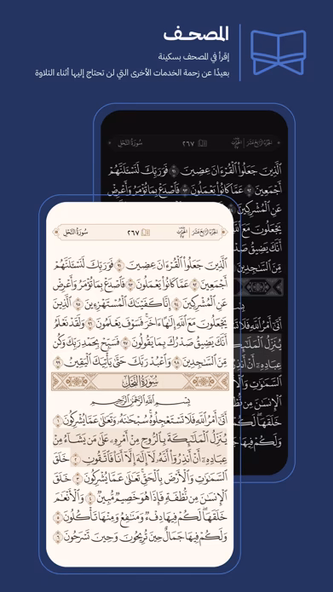 المصحف
إقرأ في المصحف بسكينة
بعيدًا عن زحمة الخدمات الأخرى التي لن تحتاج إليها أثناء التلاوة
سُورَةُ النَّحْل
٢٦٧
الجزء الرابع عشر
الَّذِينَ جَعَلُوا الْقُرْءَانَ عِضِينَ ٩١ فَوَرَبِّكَ لَنَسْـَٔلَنَّهُمْ
أَجْمَعِينَ ٩٢ عَمَّا كَانُوا يَعْمَلُونَ ٩٣ فَاصْدَعْ بِمَا تُؤْمَرُ وَأَعْرِضْ
عَنِ الْمُشْرِكِينَ ٩٤ إِنَّا كَفَيْنَاكَ الْمُسْتَهْزِءِينَ ٩٥ الَّذِينَ
يَجْعَلُونَ مَعَ اللَّهِ إِلَٰهًا ءَاخَرَ فَسَوْفَ يَعْلَمُونَ ٩٦ وَلَقَدْ نَعْلَمُ
أَنَّكَ يَضِيقُ صَدْرُكَ بِمَا يَقُولُونَ ٩٧ فَسَبِّحْ بِحَمْدِ رَبِّكَ وَكُن
مِّنَ السَّاجِدِينَ ٩٨ وَاعْبُدْ رَبَّكَ حَتَّىٰ يَأْتِيَكَ الْيَقِينُ ٩٩
سُورَةُ النَّحْلِ
بِسْمِ اللَّهِ الرَّحْمَٰنِ الرَّحِيمِ
أَتَىٰ أَمْرُ اللَّهِ فَلَا تَسْتَعْجِلُوهُ سُبْحَانَهُ وَتَعَالَىٰ عَمَّا يُشْرِكُونَ ١
يُنَزِّلُ الْمَلَائِكَةَ بِالرُّوحِ مِنْ أَمْرِهِ عَلَىٰ مَن يَشَاءُ مِنْ
عِبَادِهِ أَنْ أَنذِرُوا أَنَّهُ لَا إِلَٰهَ إِلَّا أَنَا فَاتَّقُونِ ٢ خَلَقَ
السَّمَاوَاتِ وَالْأَرْضَ بِالْحَقِّ تَعَالَىٰ عَمَّا يُشْرِكُونَ ٣ خَلَقَ
الْإِنسَانَ مِن نُّطْفَةٍ فَإِذَا هُوَ خَصِيمٌ مُّبِينٌ ٤ وَالْأَنْعَامَ
خَلَقَهَا لَكُمْ فِيهَا دِفْءٌ وَمَنَافِعُ وَمِنْهَا تَأْكُلُونَ ٥
وَلَكُمْ فِيهَا جَمَالٌ حِينَ تُرِيحُونَ وَحِينَ تَسْرَحُونَ ٦